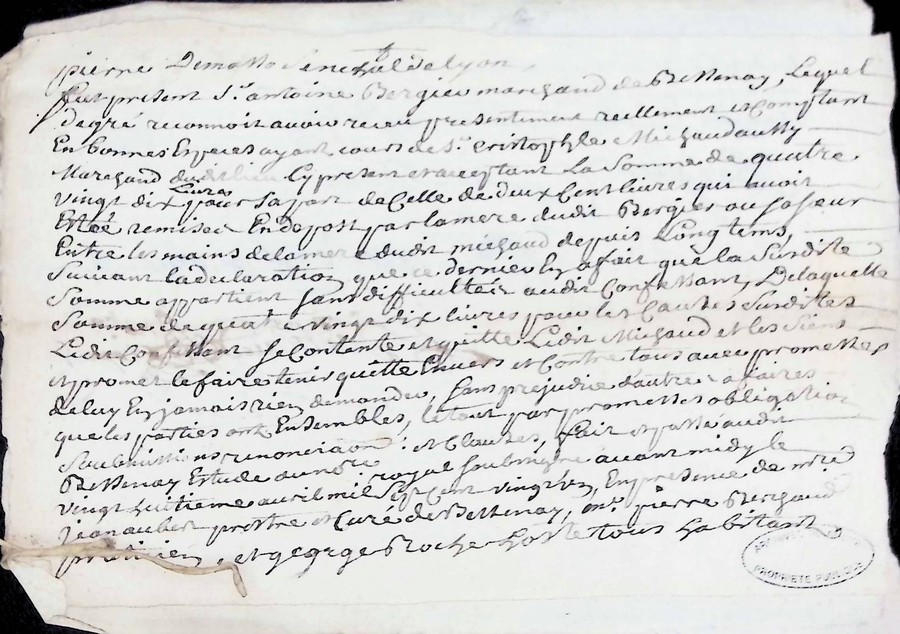 pierre Demotte Senechal de lyon
fut present Sr. antoine Bergier marchand de Bettenay, Lequel
degré reconnoit avoir receu presentement reellement et Comptant
En bonnes Especes ayant cours de Sr. Cristophle Michaud aussy
Marchand dudit lieu Cy present et acceptant La Somme de quatre
vingt dix Livres pour Sa part de Celle de deux Cent livres qui avoit
Esté remise En depost par la mere dudit Bergier ou sa soeur
Entre les mains de la mere dudit michaud depuis Longtems,
Suivant la declaration que ce dernier En a fait que la Surdite
Somme appartient sans difficulté audit Confessant, De laquelle
Somme de quatre vingt dix livres pour les Causes Surdittes
Ledit Confessant Se Contente et quitte Ledit Michaud et les Siens
et promet le faire tenir quitte Envers et Contre tous avec promesse
de luy En jamais rien demander, sans prejudice d'autres affaires
que les parties ont Ensembles, le tout par promesses obligation
Soubmissions renonciaon: et Clauses, fait et passé audit
Bettenay Estude du nore royal soubsigné avant midy le
vingt huitieme avril mil Sept Cent vingt Un, En presence de mre
jean aubert prestre et Curé de Bettenay, Mr. pierre Berchoud
praticien, et george Roche hoste tous habitant
PROPRIÉTÉ PUBLIQUE